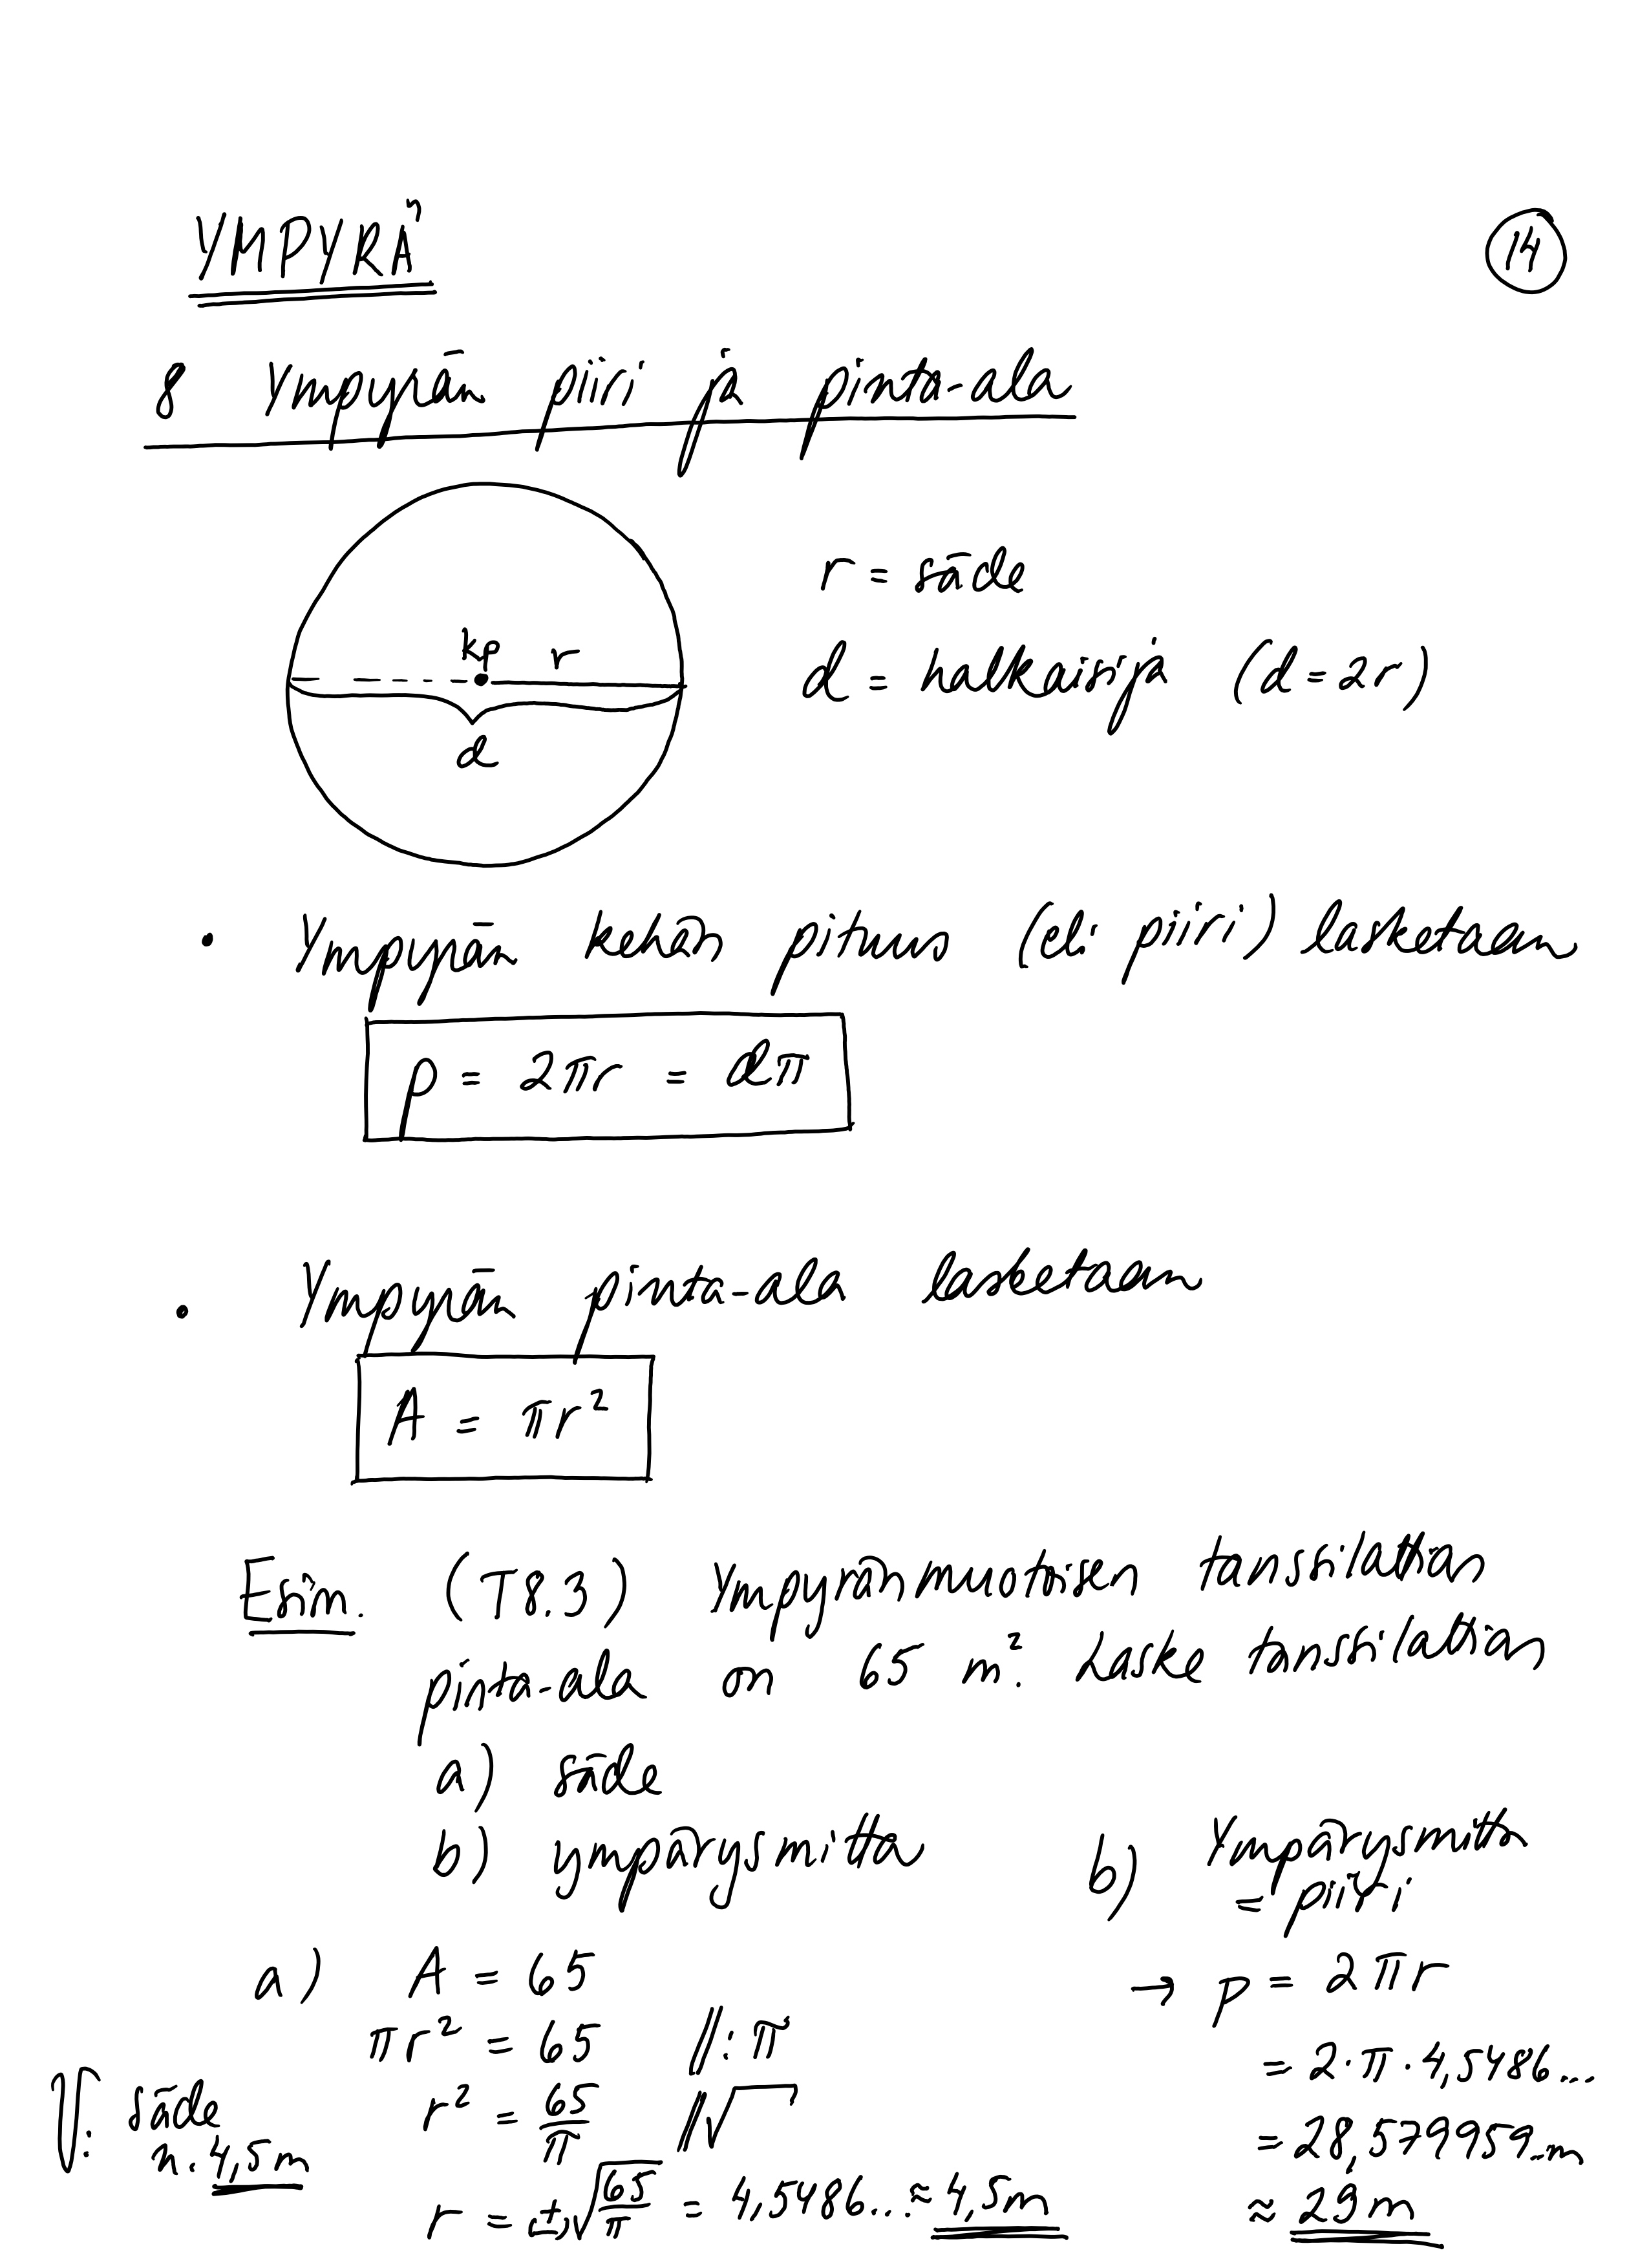 YMPYRÄ
14
8 Ympyrän piiri ja pinta-ala
r = säde
kp r
d = halkaisija (d = 2r)
d
• Ympyrän kehän pituus (eli piiri) lasketaan
p = 2πr = dπ
• Ympyrän pinta-ala lasketaan
A = πr²
Esim. (T8.3) Ympyränmuotoisen tanssilattian
pinta-ala on 65 m². Laske tanssilattian
a) säde
b) ympärysmitta
a) A = 65
πr² = 65 ||:π
r² = 65/π ||√
r = ±√(65/π) = 4,5486... ≈ 4,5m
V: säde
n. 4,5m
b) Ympärysmitta
= piiri
→ p = 2πr
= 2·π·4,5486...
= 28,579959...m
≈ 29m